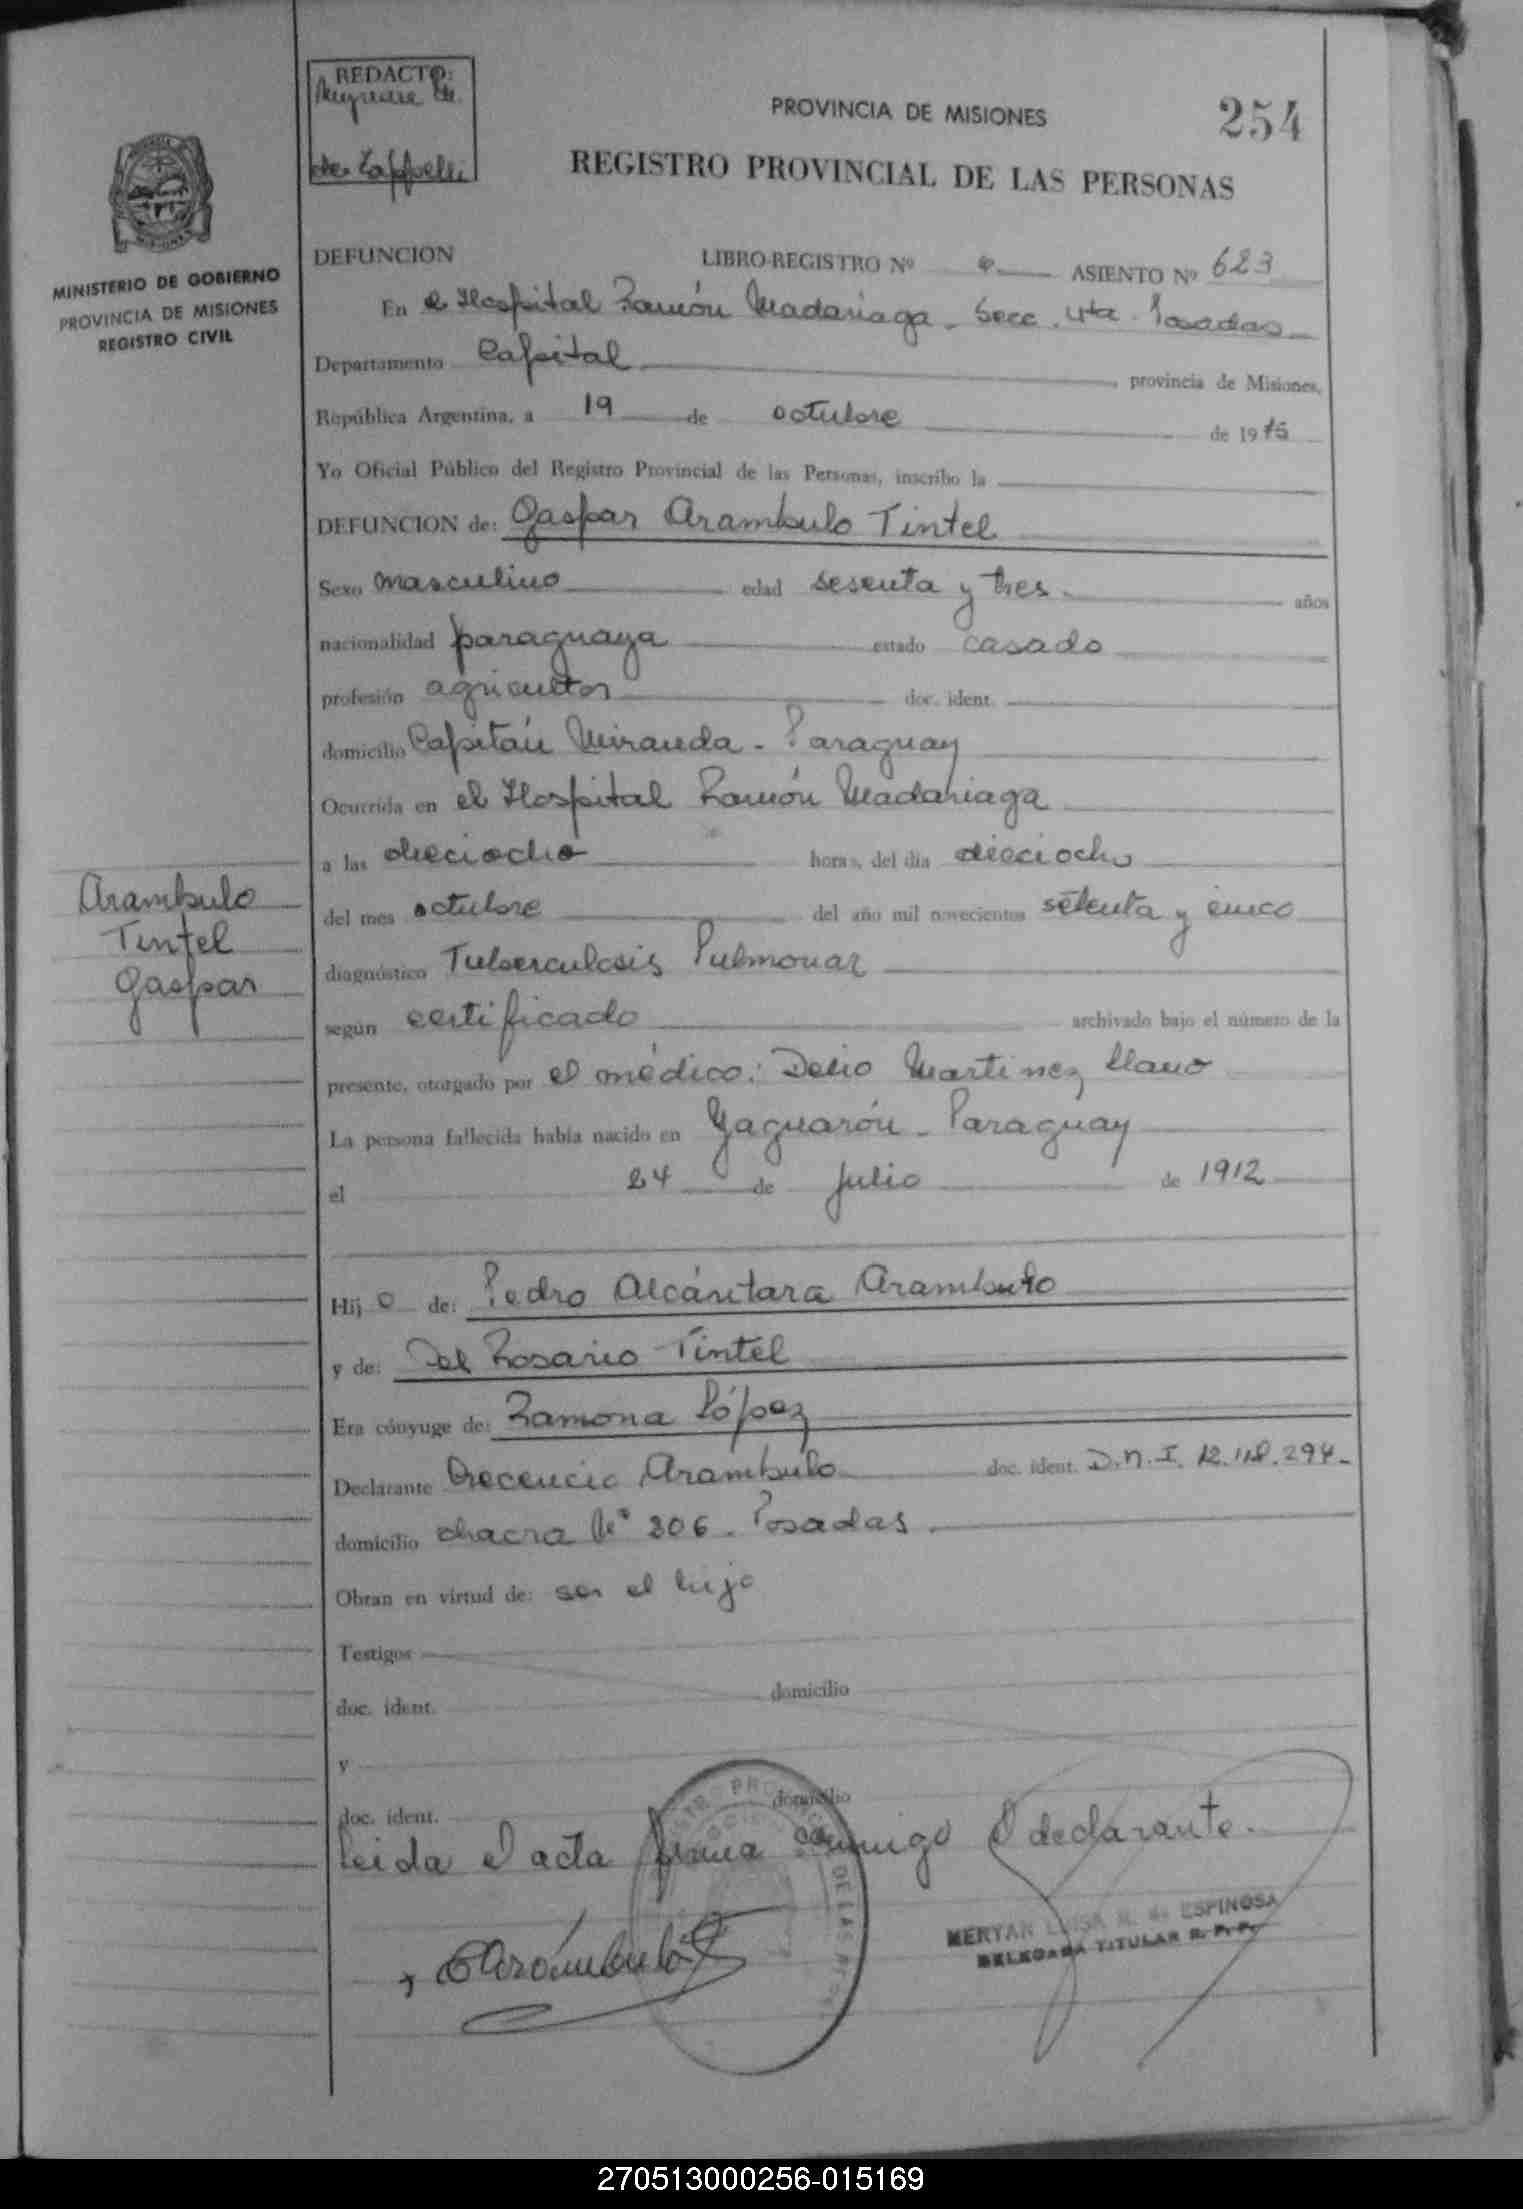 REDACTO:
de Zappelli
PROVINCIA DE MISIONES
254
REGISTRO PROVINCIAL DE LAS PERSONAS
MINISTERIO DE GOBIERNO
PROVINCIA DE MISIONES
REGISTRO CIVIL
DEFUNCION LIBRO-REGISTRO Nº ASIENTO Nº 623
En el Hospital Ramón Madariaga - Secc. 4ta. Posadas
Departamento Capital, provincia de Misiones,
República Argentina, a 19 de octubre de 1975
Yo Oficial Público del Registro Provincial de las Personas, inscribo la
DEFUNCION de: Gaspar Arambulo Tintel
Sexo masculino edad sesenta y tres años
nacionalidad paraguaya estado casado
profesión agricultor doc. ident.
domicilio Capitán Miranda - Paraguay
Ocurrida en el Hospital Ramón Madariaga
a las dieciocho horas, del día dieciocho
del mes octubre del año mil novecientos setenta y cinco
diagnóstico Tuberculosis Pulmonar
según certificado archivado bajo el número de la
presente, otorgado por el médico: Delio Martinez Llano
La persona fallecida había nacido en Yaguarón - Paraguay
el 24 de julio de 1912
Arambulo
Tintel
Gaspar
Hijo de: Pedro Alcántara Arambulo
y de: Del Rosario Tintel
Era cónyuge de: Ramona López
Declarante Crecencio Arambulo doc. ident. D.N.I. 12.118.294-
domicilio chacra Nº 206 - Posadas.
Obran en virtud de: ser el hijo
Testigos
doc. ident. domicilio
y
doc. ident. domicilio
leida el acta firma conmigo el declarante.
MERYAN LUISA N. de ESPINOSA
DELEGADA TITULAR R. P. P.
270513000256-015169